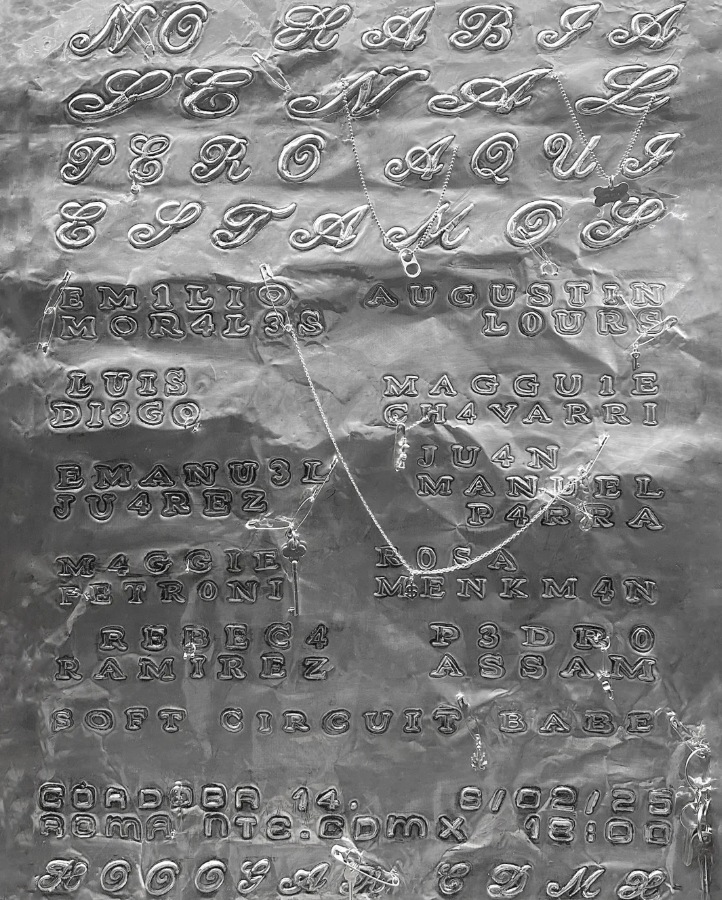 NO HABIA
SEÑAL
PERO AQUI
ESTAMOS
EM1LIO
MOR4L3S
AUGUSTIN
L0URS
LUIS
DI3GO
MAGGU1E
CH4VARRI
EMANU3L
JU4REZ
JU4N
MANUEL
P4RRA
M4GGIE
PETR0NI
ROSA
MENKM4N
REBEC4
RAMIREZ
P3DRO
ASSAM
SOFT CIRCUIT BABE
CORDOBA 14. 8/02/25
ROMA NTE.CDMX 18:00